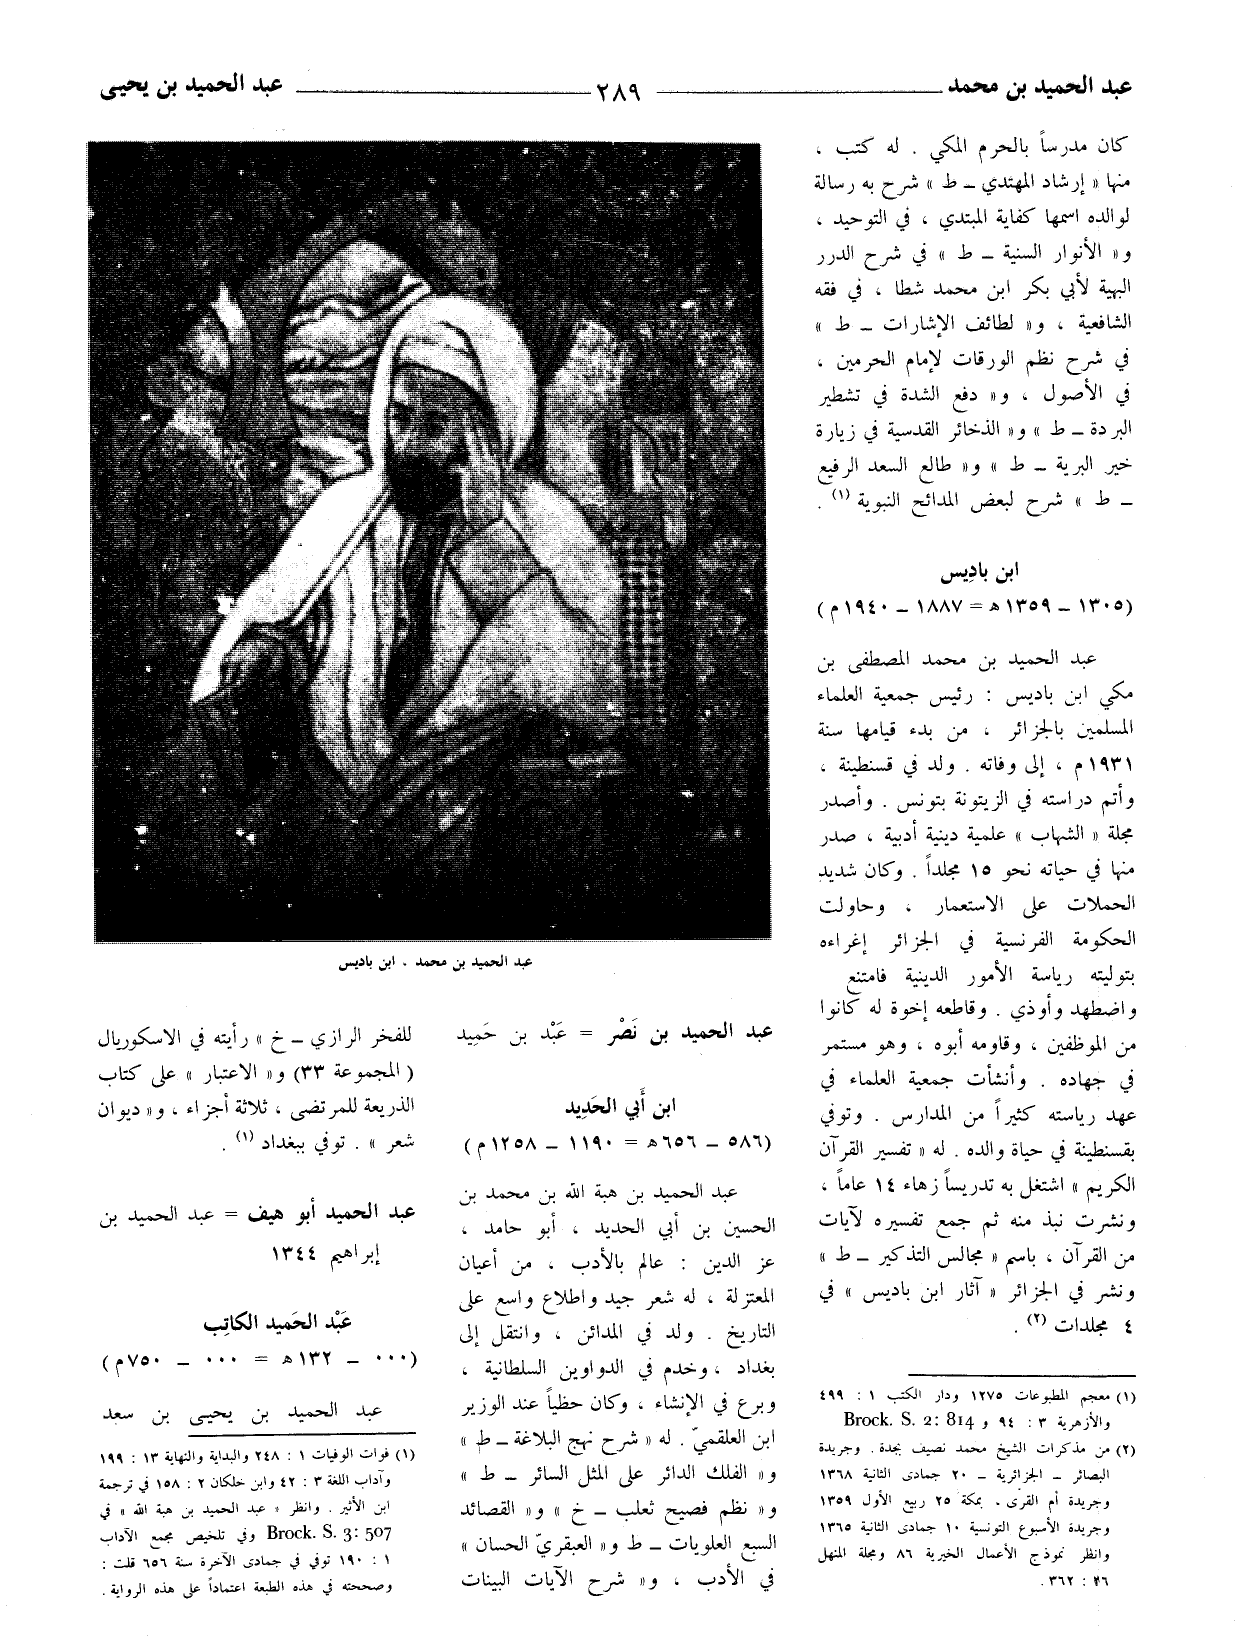 عبد الحميد بن محمد ــــــ ٢٨٩ ــــــ عبد الحميد بن يحيى
كان مدرساً بالحرم المكي . له كتب ،
منها « إرشاد المهتدي ــ ط » شرح به رسالة
لوالده اسمها كفاية المبتدي ، في التوحيد ،
و« الأنوار السنية ــ ط » في شرح الدرر
البهية لأبي بكر ابن محمد شطا ، في فقه
الشافعية ، و« لطائف الإشارات ــ ط »
في شرح نظم الورقات لإمام الحرمين ،
في الأصول ، و« دفع الشدة في تشطير
البردة ــ ط » و« الذخائر القدسية في زيارة
خير البرية ــ ط » و« طالع السعد الرفيع
ــ ط » شرح لبعض المدائح النبوية (١) .
ابن باديس
(١٣٠٥ ــ ١٣٥٩ هـ = ١٨٨٧ ــ ١٩٤٠ م)
عبد الحميد بن محمد المصطفى بن
مكي ابن باديس : رئيس جمعية العلماء
المسلمين بالجزائر ، من بدء قيامها سنة
١٩٣١ م ، إلى وفاته . ولد في قسنطينة ،
وأتم دراسته في الزيتونة بتونس . وأصدر
مجلة « الشهاب » علمية دينية أدبية ، صدر
منها في حياته نحو ١٥ مجلداً . وكان شديد
الحملات على الاستعمار ، وحاولت
الحكومة الفرنسية في الجزائر إغراءه
بتوليته رياسة الأمور الدينية فامتنع
واضطهد وأوذي . وقاطعه إخوة له كانوا
من الموظفين ، وقاومه أبوه ، وهو مستمر
في جهاده . وأنشأت جمعية العلماء في
عهد رياسته كثيراً من المدارس . وتوفي
بقسنطينة في حياة والده . له « تفسير القرآن
الكريم » اشتغل به تدريساً زهاء ١٤ عاماً ،
ونشرت نبذ منه ثم جمع تفسيره لآيات
من القرآن ، باسم « مجالس التذكير ــ ط »
ونشر في الجزائر « آثار ابن باديس » في
٤ مجلدات (٢) .
(١) معجم المطبوعات ١٢٧٥ ودار الكتب ١ : ٤٩٩
والأزهرية ٣ : ٩٤ و Brock. S. 2: 814
(٢) من مذكرات الشيخ محمد نصيف بجدة . وجريدة
البصائر ــ الجزائرية ــ ٢٠ جمادى الثانية ١٣٦٨
وجريدة أم القرى ، بمكة ٢٥ ربيع الأول ١٣٥٩
وجريدة الأسبوع التونسية ١٠ جمادى الثانية ١٣٦٥
وانظر نموذج الأعمال الخيرية ٨٦ ومجلة المنهل
٢٦ : ٣٦٢ .
عبد الحميد بن محمد ، ابن باديس
عبد الحميد بن نَصْر = عَبْد بن حَمِيد
ابن أَبي الحَدِيد
(٥٨٦ ــ ٦٥٦ هـ = ١١٩٠ ــ ١٢٥٨ م)
عبد الحميد بن هبة الله بن محمد بن
الحسين بن أبي الحديد ، أبو حامد ،
عز الدين : عالم بالأدب ، من أعيان
المعتزلة ، له شعر جيد واطلاع واسع على
التاريخ . ولد في المدائن ، وانتقل إلى
بغداد ، وخدم في الدواوين السلطانية ،
وبرع في الإنشاء ، وكان حظياً عند الوزير
ابن العلقميّ . له « شرح نهج البلاغة ــ ط »
و« الفلك الدائر على المثل السائر ــ ط »
و« نظم فصيح ثعلب ــ خ » و« القصائد
السبع العلويات ــ ط و« العبقريّ الحسان »
في الأدب ، و« شرح الآيات البينات
للفخر الرازي ــ خ » رأيته في الاسكوريال
(المجموعة ٣٣) و« الاعتبار » على كتاب
الذريعة للمرتضى ، ثلاثة أجزاء ، و« ديوان
شعر » . توفي ببغداد (١) .
عبد الحميد أبو هيف = عبد الحميد بن
إبراهيم ١٣٤٤
عَبْد الحَمِيد الكاتِب
(٠٠٠ ــ ١٣٢ هـ = ٠٠٠ ــ ٧٥٠ م)
عبد الحميد بن يحيى بن سعد
(١) فوات الوفيات ١ : ٢٤٨ والبداية والنهاية ١٣ : ١٩٩
وآداب اللغة ٣ : ٤٢ وابن خلكان ٢ : ١٥٨ في ترجمة
ابن الأثير . وانظر « عبد الحميد بن هبة الله » في
Brock. S. 3: 507 وفي تلخيص مجمع الآداب
١ : ١٩٠ توفي في جمادى الآخرة سنة ٦٥٦ قلت :
وصححته في هذه الطبعة اعتماداً على هذه الرواية .